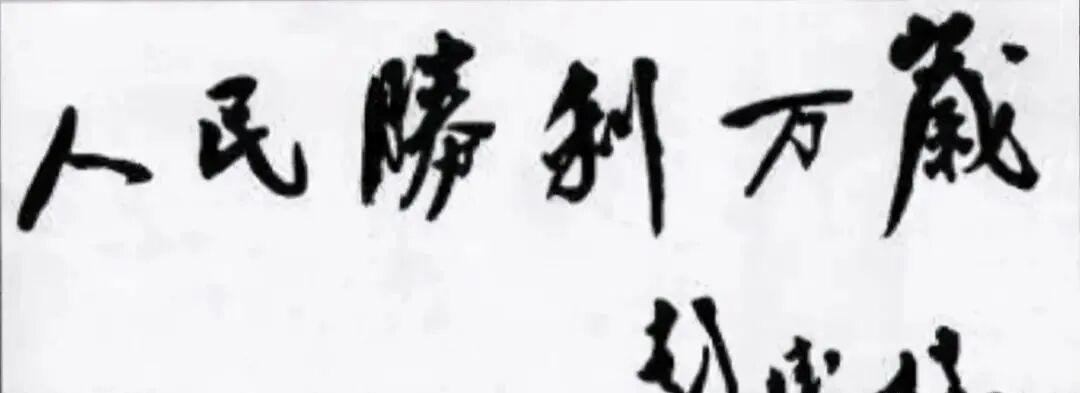 人民勝利万歲